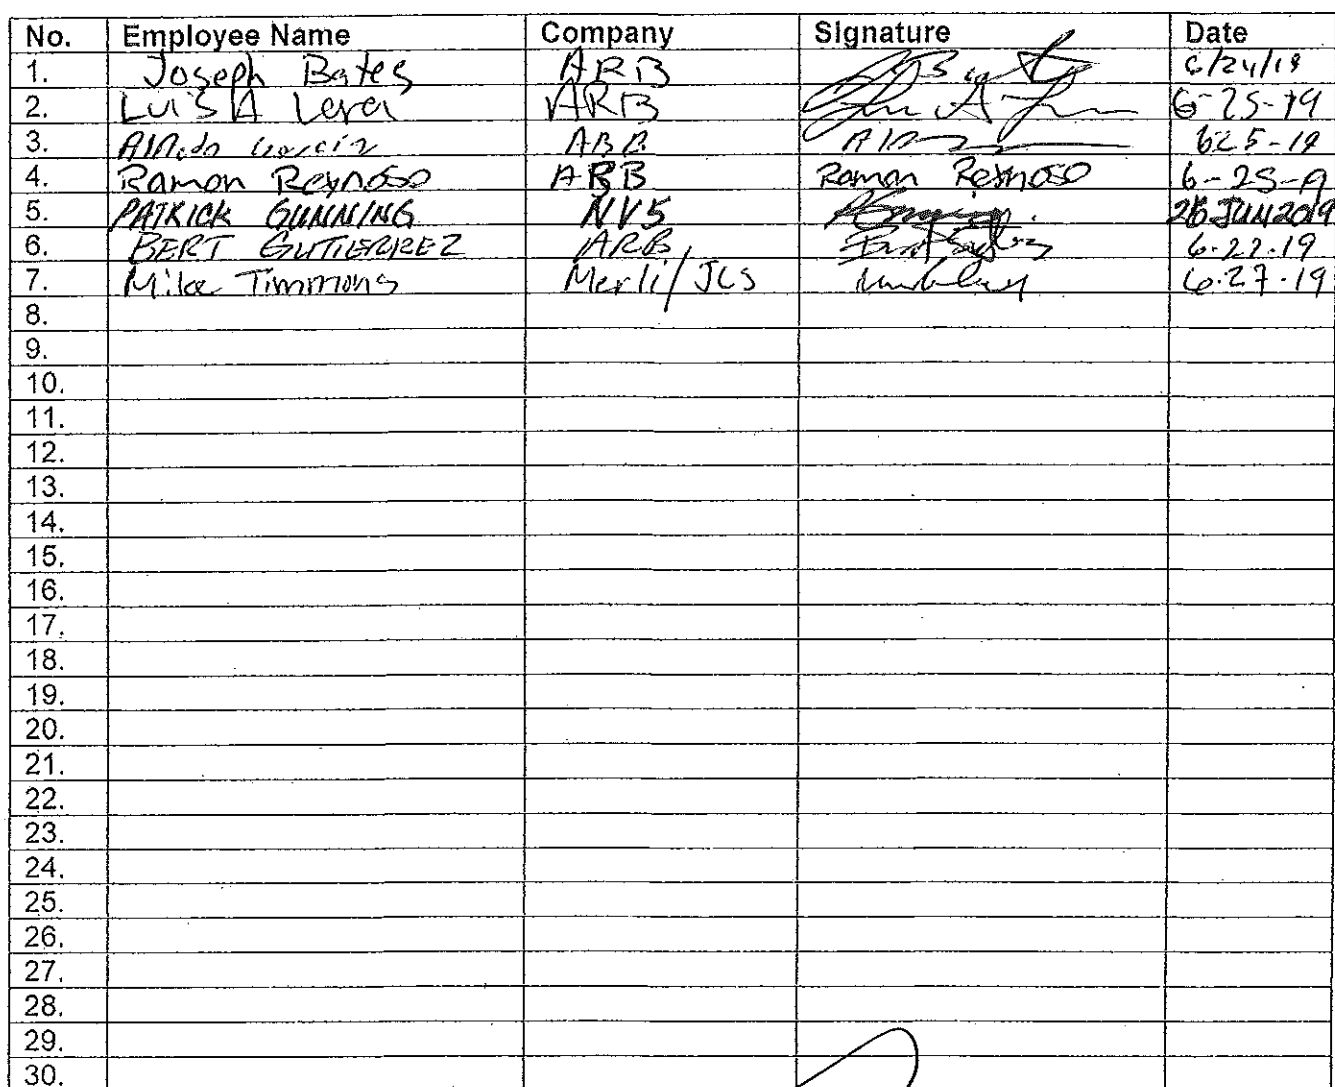 No. Employee Name Company Signature Date
1. Joseph Bates ARB 6/24/19
2. Luis A ARB 6-25-19
3. Garcia ARB 625-19
4. Ramon Reynoso ARB Ramon Reynoso 6-25-19
5. PATRICK GUNNING NV5 26 JUN 2019
6. BERT GUTIERREZ ARB 6-27-19
7. Mike Timmons Merli/JCS 6-27-19
8.
9.
10.
11.
12.
13.
14.
15.
16.
17.
18.
19.
20.
21.
22.
23.
24.
25.
26.
27.
28.
29.
30.